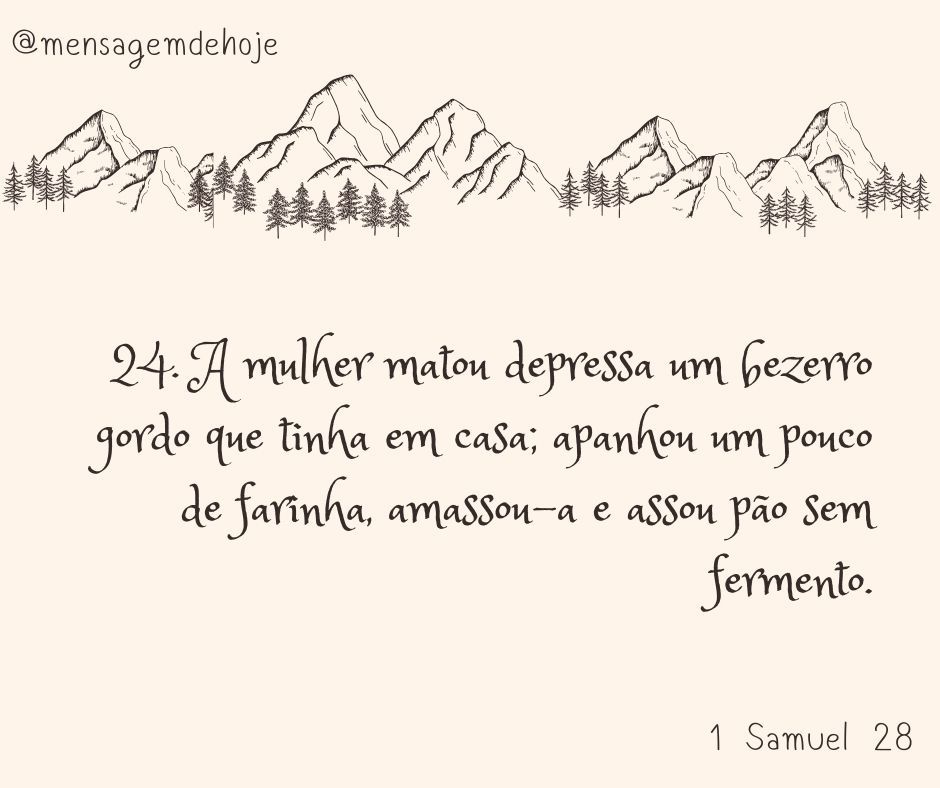 @mensagemdehoje
24. A mulher matou depressa um bezerro
gordo que tinha em casa; apanhou um pouco
de farinha, amassou-a e assou pão sem
fermento.
1 Samuel 28